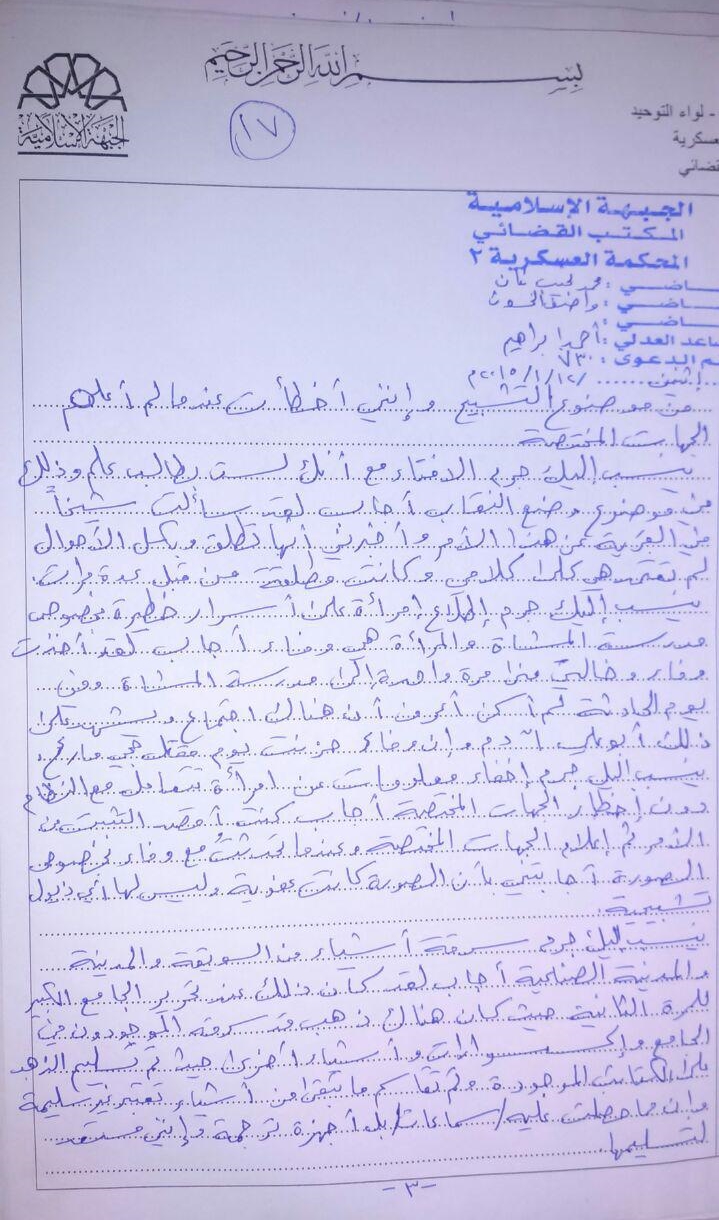 بسم الله الرحمن الرحيم
الجبهة الإسلامية
١٧
- لواء التوحيد
عسكرية
قضائي
الجبهة الإسلامية
المكتب القضائي
المحكمة العسكرية ٢
ـاضي : محمد نجيب بنان
ـاضي :
ـاضي :
ـاعد العدلي : أحمد ابراهيم
ـم الدعوى : ٧٣٠
إثنين ٢٠١٥/١/١٢م
من موضوع التشبيح وإنني أخطأت عندما لم أعلم
الجهات المختصة
ينسب إليك جرم الافتاء مع أنك لست بطالب علم وذلك
في موضوع وضع النقاب أجاب لقد سألت شيخاً
من القرية عن هذا الأمر وأخبرني أنها تطلق وبكل الأحوال
لم تعتمد هي على كلامي وكانت مطلقة من قبل عدة مرات.
ينسب إليك جرم إطلاع إمرأة على أسرار خطيرة بخصوص
مدرسة المشاة والمرأة هي وفاء أجاب لقد أخذت
وفاء وخالتي مرة واحدة إلى مدرسة المشاة ومن
يوم الحادثة لم أكن أعرف أن هناك اجتماع ويشهد على
ذلك أبو علي آدم وإن وفاء حزنت يوم مقتل حجي مارع.
ينسب إليك جرم إخفاء معلومات عن امرأة تتعامل مع النظام
دون إخطار الجهات المختصة أجاب كنت أقصد التثبت من
الأمر ثم إعلام الجهات المختصة وعندما تحدثت مع وفاء بخصوص
الصورة أجابتني بأن الصورة كانت عفوية وليس لها أي ذيول
تشبيحية.
ينسب إليك جرم سرقة أشياء من السويقة والمدينة
والمدينة الصناعية أجاب لقد كان ذلك عند تحرير الجامع الكبير
للمرة الثانية حيث كان هناك ذهب قد سرقه الموجودون من
الجامع وإكسسوارات وأشياء أخرى حيث تم تسليم الذهب
على الكتائب الموجودة وتم تقاسم ما تبقى من أشياء تعتبر غير سليمة
وإن ما حصلت عليه /سماعات/ بل أجهزة ترجمة وإنني مستعد
لتسليمها.
-٣-